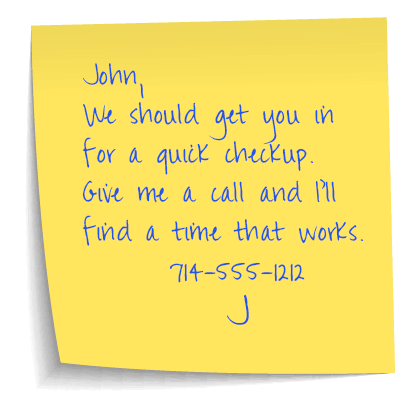 John,
We should get you in
for a quick checkup.
Give me a call and I'll
find a time that works.
714-555-1212
J